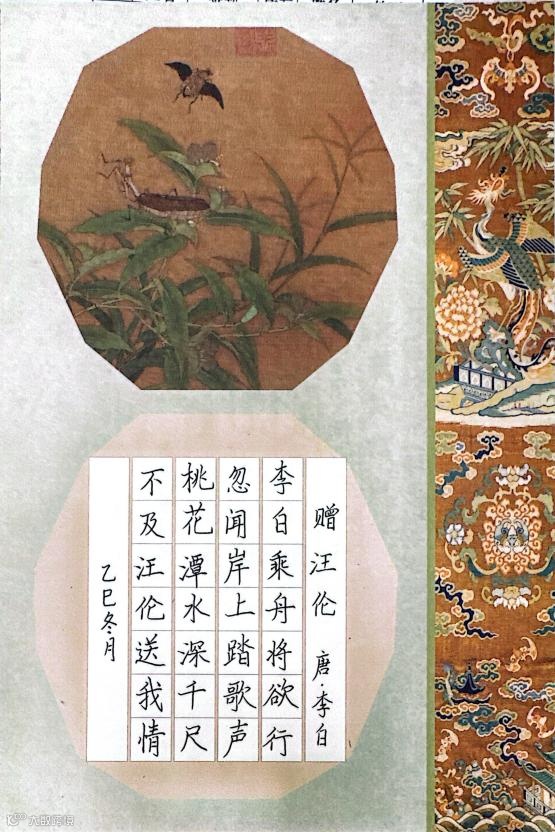 赠汪伦 唐·李白
李白乘舟将欲行
忽闻岸上踏歌声
桃花潭水深千尺
不及汪伦送我情
乙巳冬月